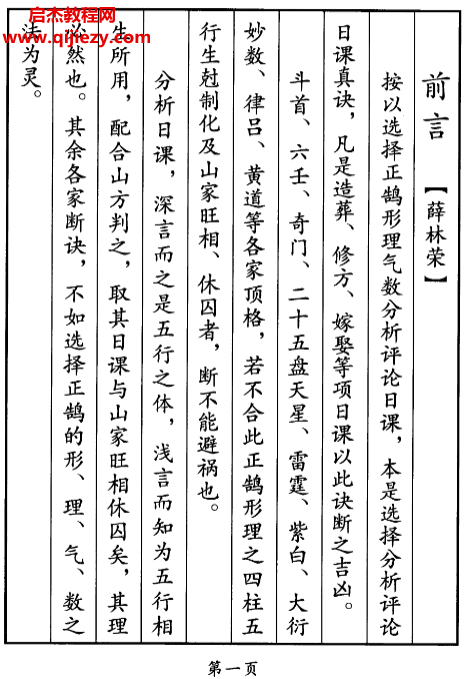 启杰教程网
www.qijiezy.com
前言【薛林荣】
按以选择正鹄形理气数分析评论日课，本是选择分析评论
日课真诀，凡是造葬、修方、嫁娶等项日课以此诀断之吉凶。
斗首、六壬、奇门、二十五盘天星、雷霆、紫白、大衍
妙数、律吕、黄道等各家顶格，若不合此正鹄形理之四柱五
行生尅制化及山家旺相、休囚者，断不能避祸也。
分析日课，深言而之是五行之体，浅言而知为五行相
生所用，配合山方判之，取其日课与山家旺相休囚矣，其理
必然也。其余各家断诀，不如选择正鹄的形、理、气、数之
法为灵。
第一页